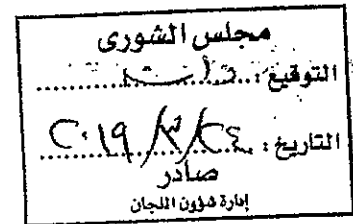 مجلس الشورى
التوقيع :
التاريخ : ٢٤ / ٣ / ٢٠١٩
صادر
إدارة شؤون اللجان